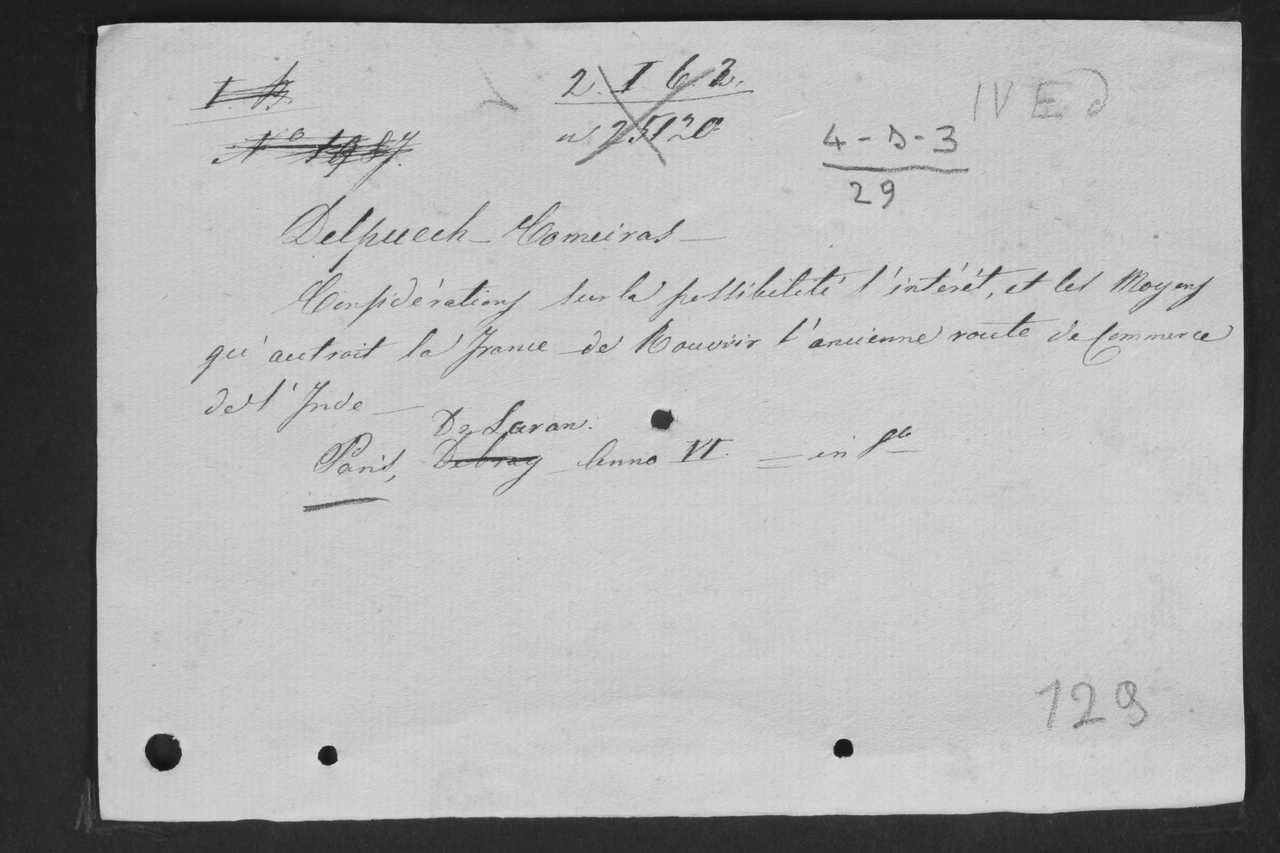 2. I 6 2.
IV E d
N° 1987.
n° 25120
4-D-3
29
Delpuech - Comeiras -
Considérations sur la possibilité l'intérêt, et les Moyens
qu'auroit la France de Rouvrir l'ancienne route de Commerce
de l'Inde -
De Laran.
Paris, Debray Anno VI. - in 8°
129